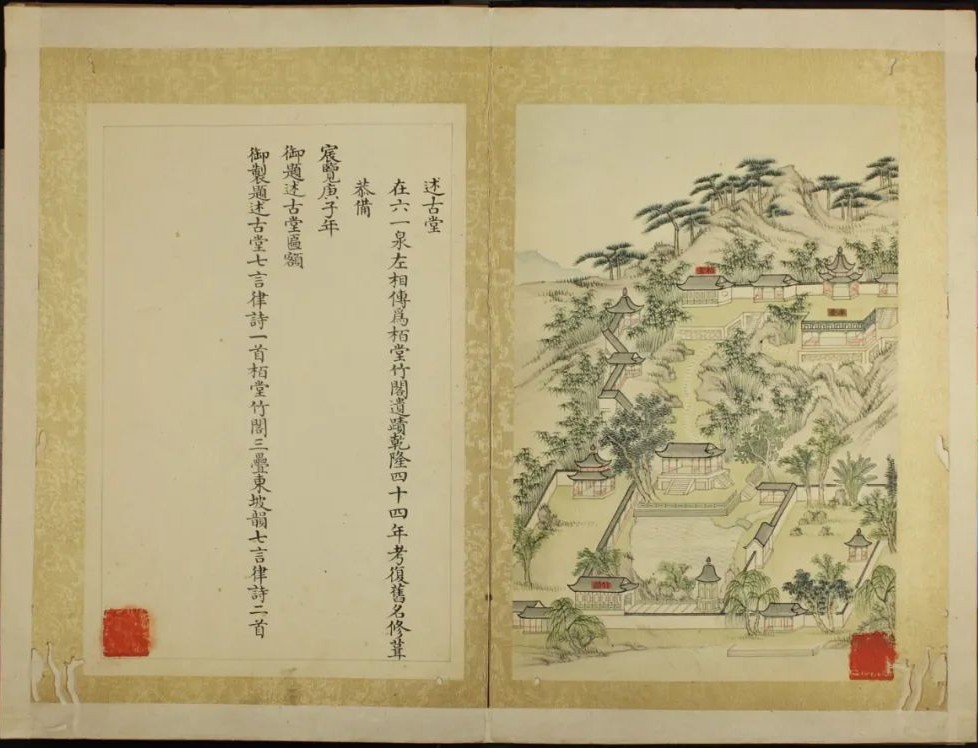 述古堂
在六一泉左相傳爲栢堂竹閣遺蹟乾隆四十四年考復舊名修葺
恭備
宸覽庚子年
御題述古堂匾額
御製題述古堂七言律詩一首栢堂竹閣三疊東坡韻七言律詩二首